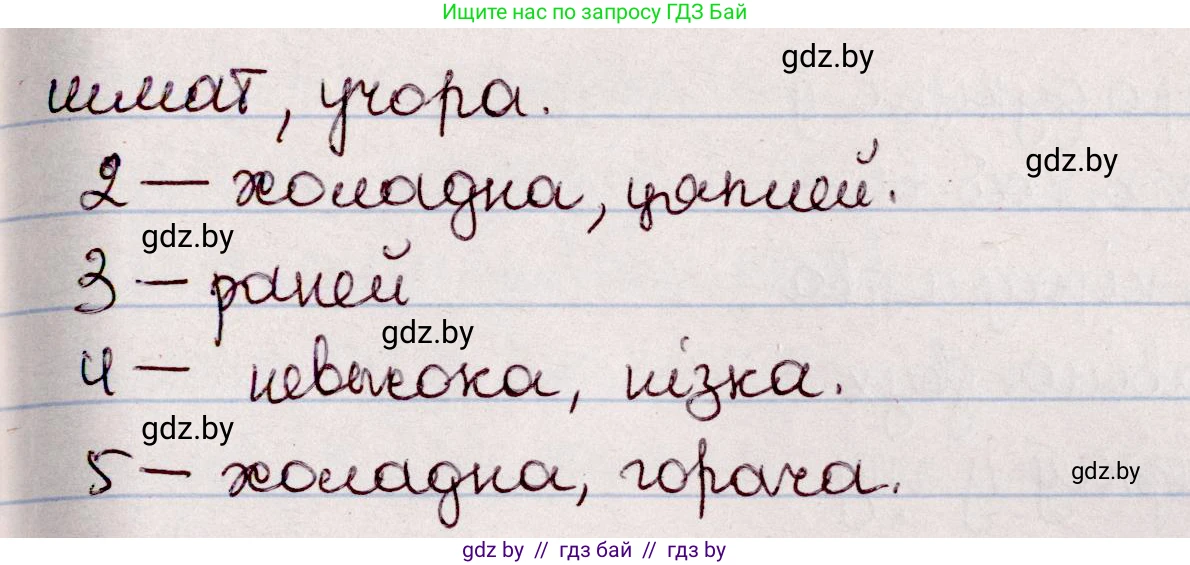 Ищите нас по запросу ГДЗ Бай
gdz.by
шмат, учора.
gdz.by
2 — холадна, цяплей.
gdz.by
3 — раней
gdz.by
4 — невысока, нізка.
gdz.by
5 — холадна, горача.
gdz.by
gdz by // гдз бай // гдз by